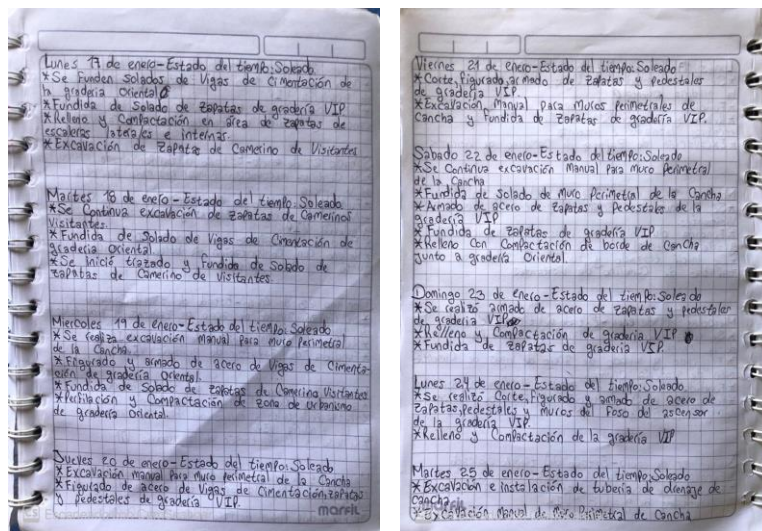 Lunes 17 de enero-Estado del tiempo: Soleado
*Se Funden solados de Vigas de Cimentación de
la graderia Oriental
*Fundida de Solado de zapatas de gradería VIP
*Relleno y Compactación en área de zapatas de
escaleras laterales e internas.
*Excavación de zapatas de Camerino de Visitantes
Martes 18 de enero-Estado del tiempo: Soleado
*Se Continua excavación de zapatas de Camerinos
Visitantes.
*Fundida de Solado de Vigas de Cimentación de
gradería Oriental.
*Se inició trazado y fundida de Solado de
zapatas de Camerino de Visitantes
Miercoles 19 de enero-Estado del tiempo: Soleado
*Se realiza excavación manual para muro perimetral
de la Cancha.
*Figurado y armado de acero de Vigas de Cimenta-
ción de gradería Oriental.
*Fundida de Solado de zapatas de Camerino Visitantes
*Perfilación y Compactación de zona de urbanismo
de gradería Oriental.
Jueves 20 de enero-Estado del tiempo: Soleado
*Excavación manual para muro perimetral de la Cancha
*Figurado de acero de Vigas de Cimentación, zapatas
y pedestales de gradería VIP.
marfil
Viernes 21 de enero-Estado del tiempo: Soleado
*Corte, figurado, armado de zapatas y pedestales
de gradería VIP.
*Excavación Manual para muros perimetrales de
Cancha y Fundida de zapatas de gradería VIP.
Sabado 22 de enero-Estado del tiempo: Soleado
*Se Continua excavación Manual Para muro Perimetral
de la Cancha
*Fundida de solado de Muro Perimetral de la Cancha
*Armado de acero de zapatas y Pedestales de la
gradería VIP
*Fundida de zapatas de gradería VIP
*Relleno con Compactación de borde de Cancha
junto a gradería Oriental.
Domingo 23 de enero-Estado del tiempo: Soleado
*Se realizó armado de acero de zapatas y pedestales
de gradería VIP.
*Relleno y Compactación de gradería VIP
*Fundida de zapatas de gradería VIP.
Lunes 24 de enero-Estado del tiempo: Soleado
*Se realizó Corte, Figurado y armado de acero de
zapatas, pedestales y muros del Foso del ascensor
de la gradería VIP.
*Relleno y Compactación de la gradería VIP
Martes 25 de enero-Estado del tiempo: Soleado
*Excavación e instalación de tubería de drenaje de
Cancha
*Excavación Manual de Muro Perimetral de Cancha